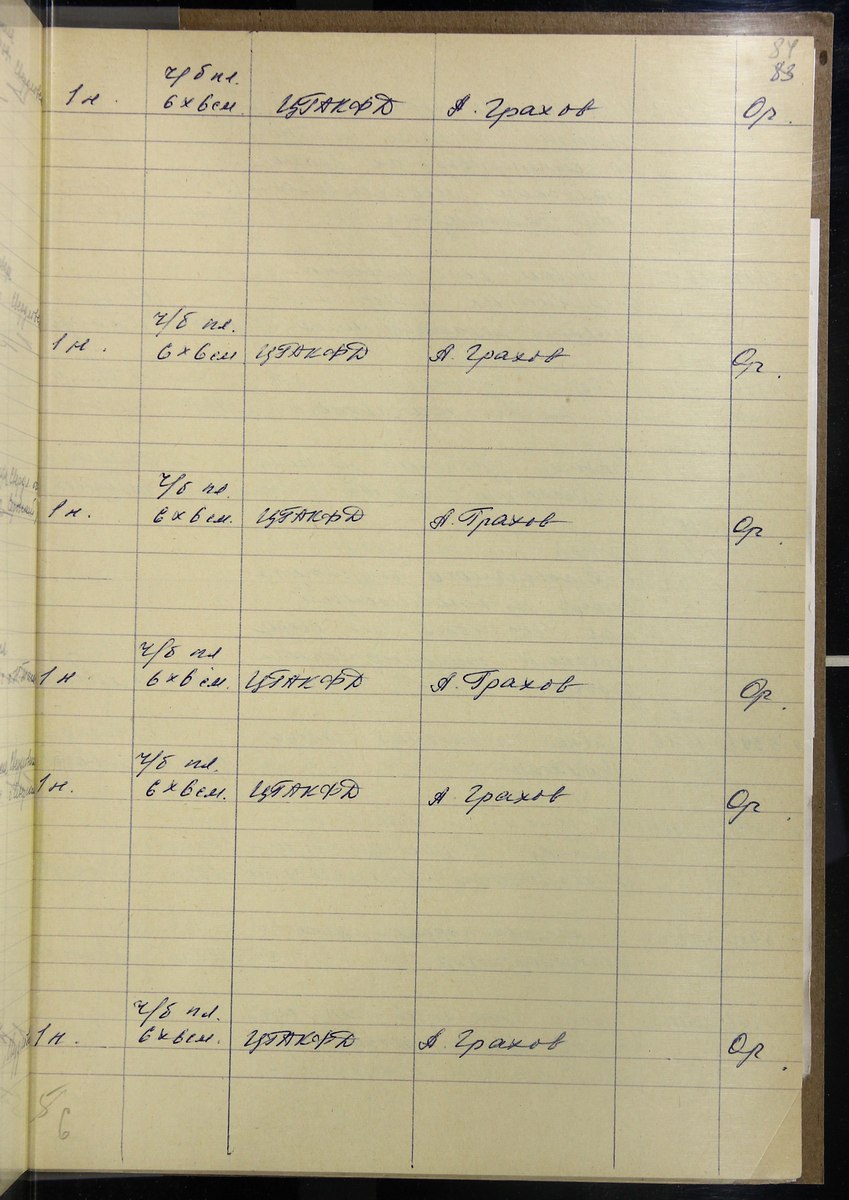 84
83
ч/б пл.
1 н. 6 х 6 см. ЦГАКФД А. Грахов Ор.
ч/б пл.
1 н. 6 х 6 см ЦГАКФД А. Грахов Ор.
ч/б пл.
1 н. 6 х 6 см. ЦГАКФД А. Грахов Ор.
ч/б пл
1 н. 6 х 6 см. ЦГАКФД А. Грахов Ор.
ч/б пл.
1 н. 6 х 6 см. ЦГАКФД А. Грахов Ор.
ч/б пл.
1 н. 6 х 6 см. ЦГАКФД А. Грахов Ор.
6